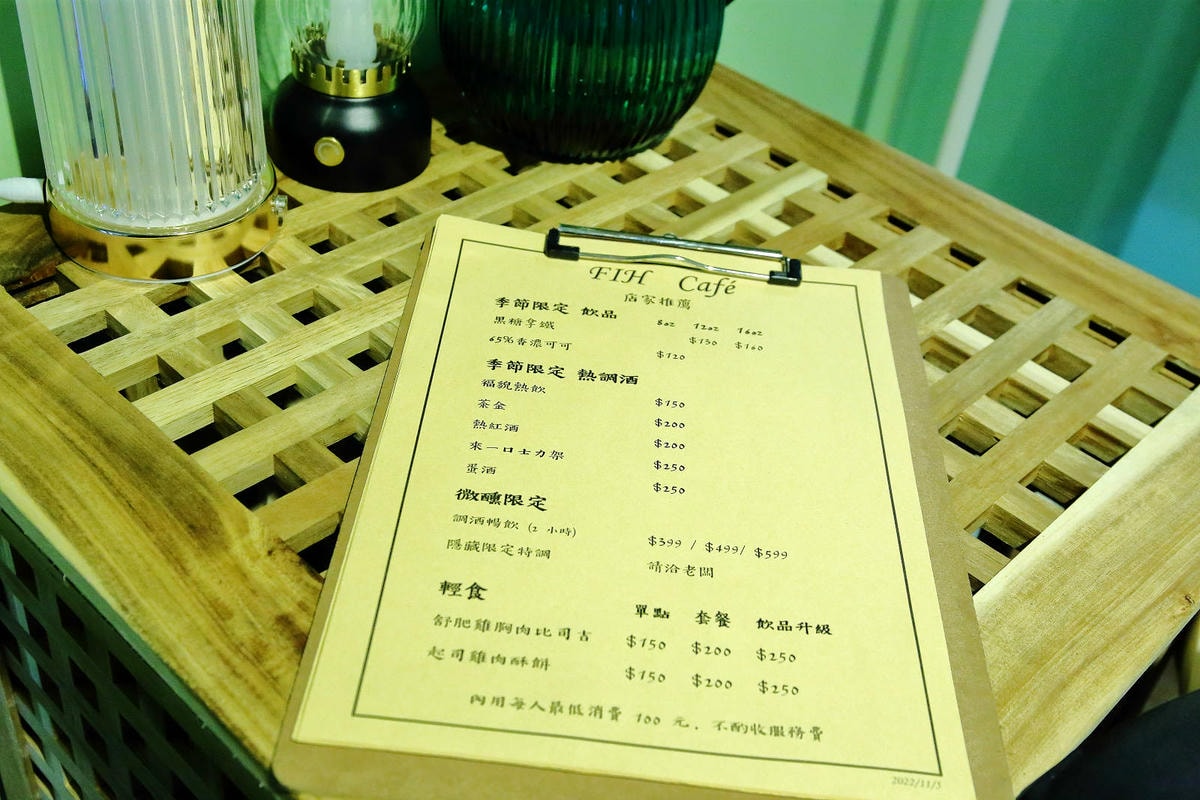 FIH Café
店家推薦
季節限定 飲品 8oz 12oz 16oz
黑糖拿鐵 $130 $160
65%香濃可可 $120
季節限定 熱調酒
福貌熱飲 $150
茶金 $200
熱紅酒 $200
來一口士力架 $250
蛋酒 $250
微醺限定
調酒暢飲 (2 小時) $399 / $499/ $599
隱藏限定特調 請洽老闆
輕食 單點 套餐 飲品升級
舒肥雞胸肉比司吉 $150 $200 $250
起司雞肉酥餅 $150 $200 $250
內用每人最低消費 100 元，不酌收服務費
2022/11/3